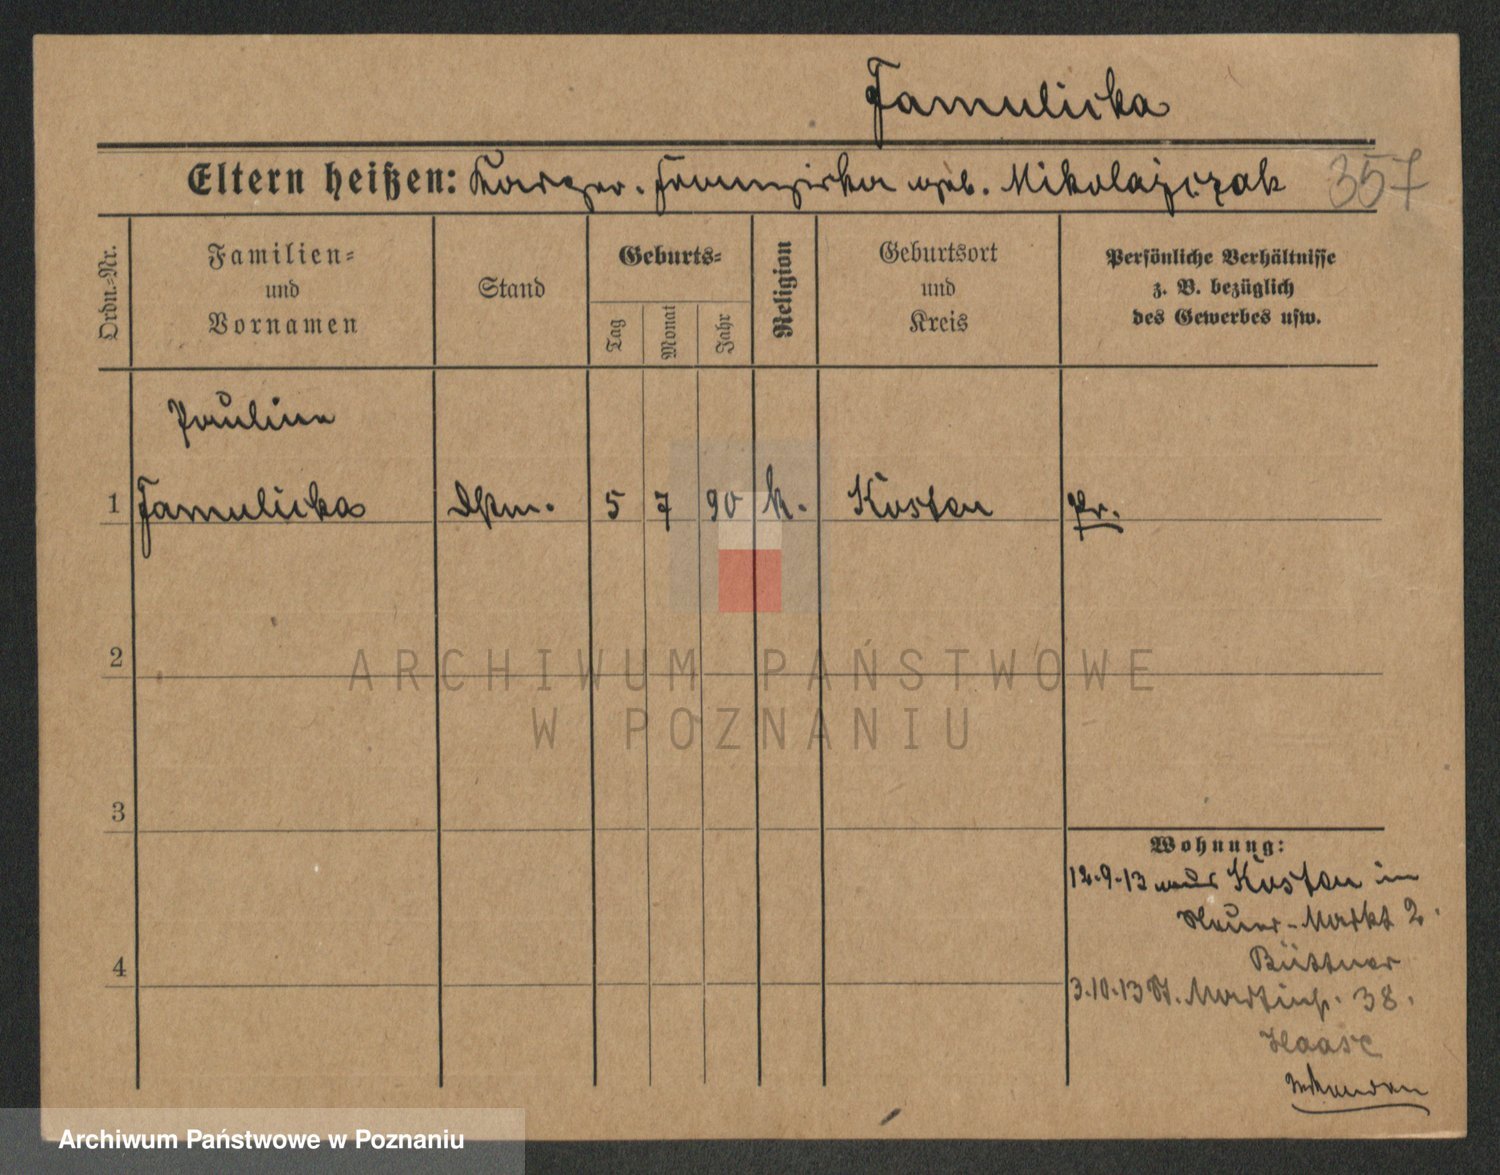 Famulicka
Eltern heißen: Kasper. Franziska geb. Mikolajczak 357
Ordn.-Nr.
Familien-
und
Vornamen
Stand
Geburts-
Tag
Monat
Jahr
Religion
Geburtsort
und
Kreis
Persönliche Verhältnisse
z. B. bezüglich
des Gewerbes usw.
Pauline
1 Famulicka Dstm. 5 7 90 k. Kosten Pr.
2
ARCHIWUM PAŃSTWOWE
W POZNANIU
3
Wohnung:
12.9.13 aus Kosten in
Neuer-Markt 2.
Büttner
4
3.10.13 St. Martinstr. 38.
Haase
Archiwum Państwowe w Poznaniu